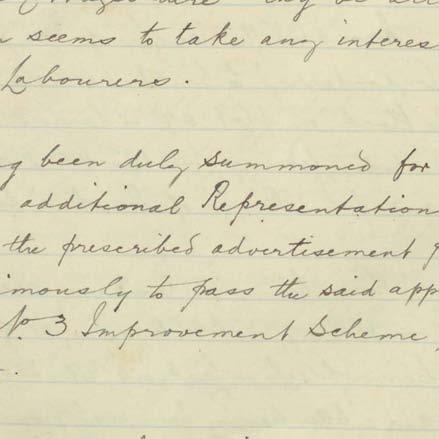 seems to take any interes
Labourers.
g been duly summoned for
additional Representation
the prescribed advertisement
imously to pass the said app
No. 3 Improvement Scheme